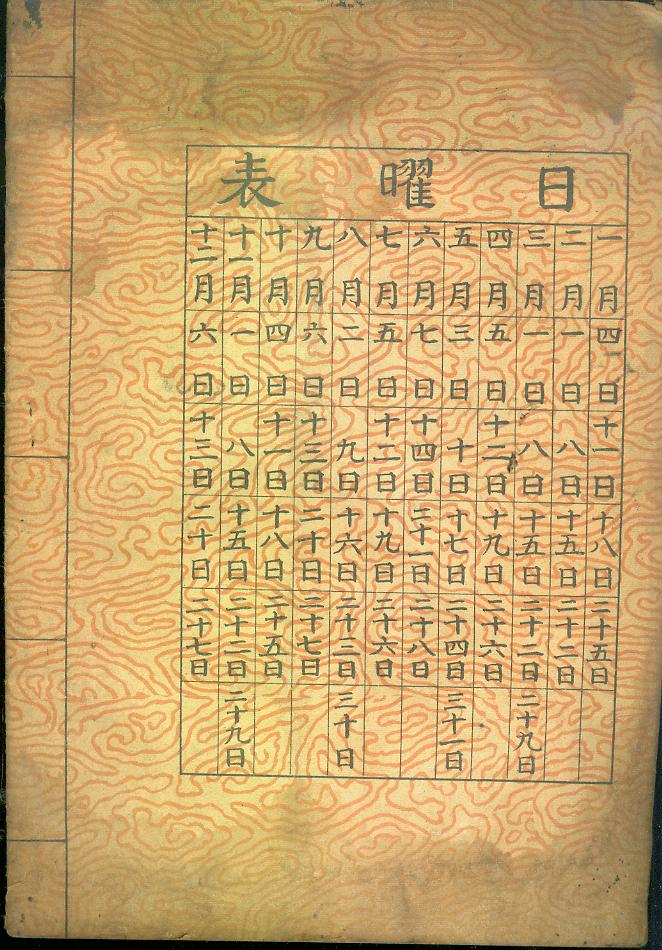 日曜表
一月 四日 十一日 十八日 二十五日
二月 一日 八日 十五日 二十二日
三月 一日 八日 十五日 二十二日 二十九日
四月 五日 十二日 十九日 二十六日
五月 三日 十日 十七日 二十四日 三十一日
六月 七日 十四日 二十一日 二十八日
七月 五日 十二日 十九日 二十六日
八月 二日 九日 十六日 二十三日 三十日
九月 六日 十三日 二十日 二十七日
十月 四日 十一日 十八日 二十五日
十一月 一日 八日 十五日 二十二日 二十九日
十二月 六日 十三日 二十日 二十七日